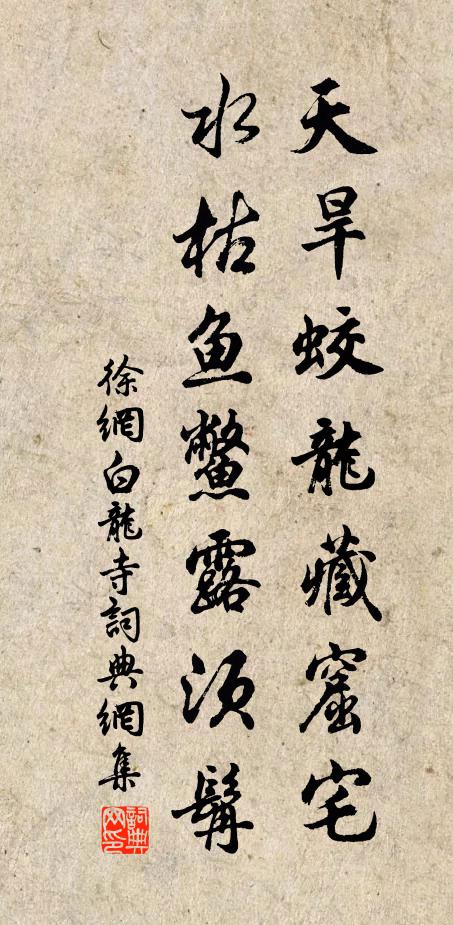 天旱蛟龍藏窟宅
水枯魚鱉露須鬐
徐網白龍寺詞典網集
詞典網印